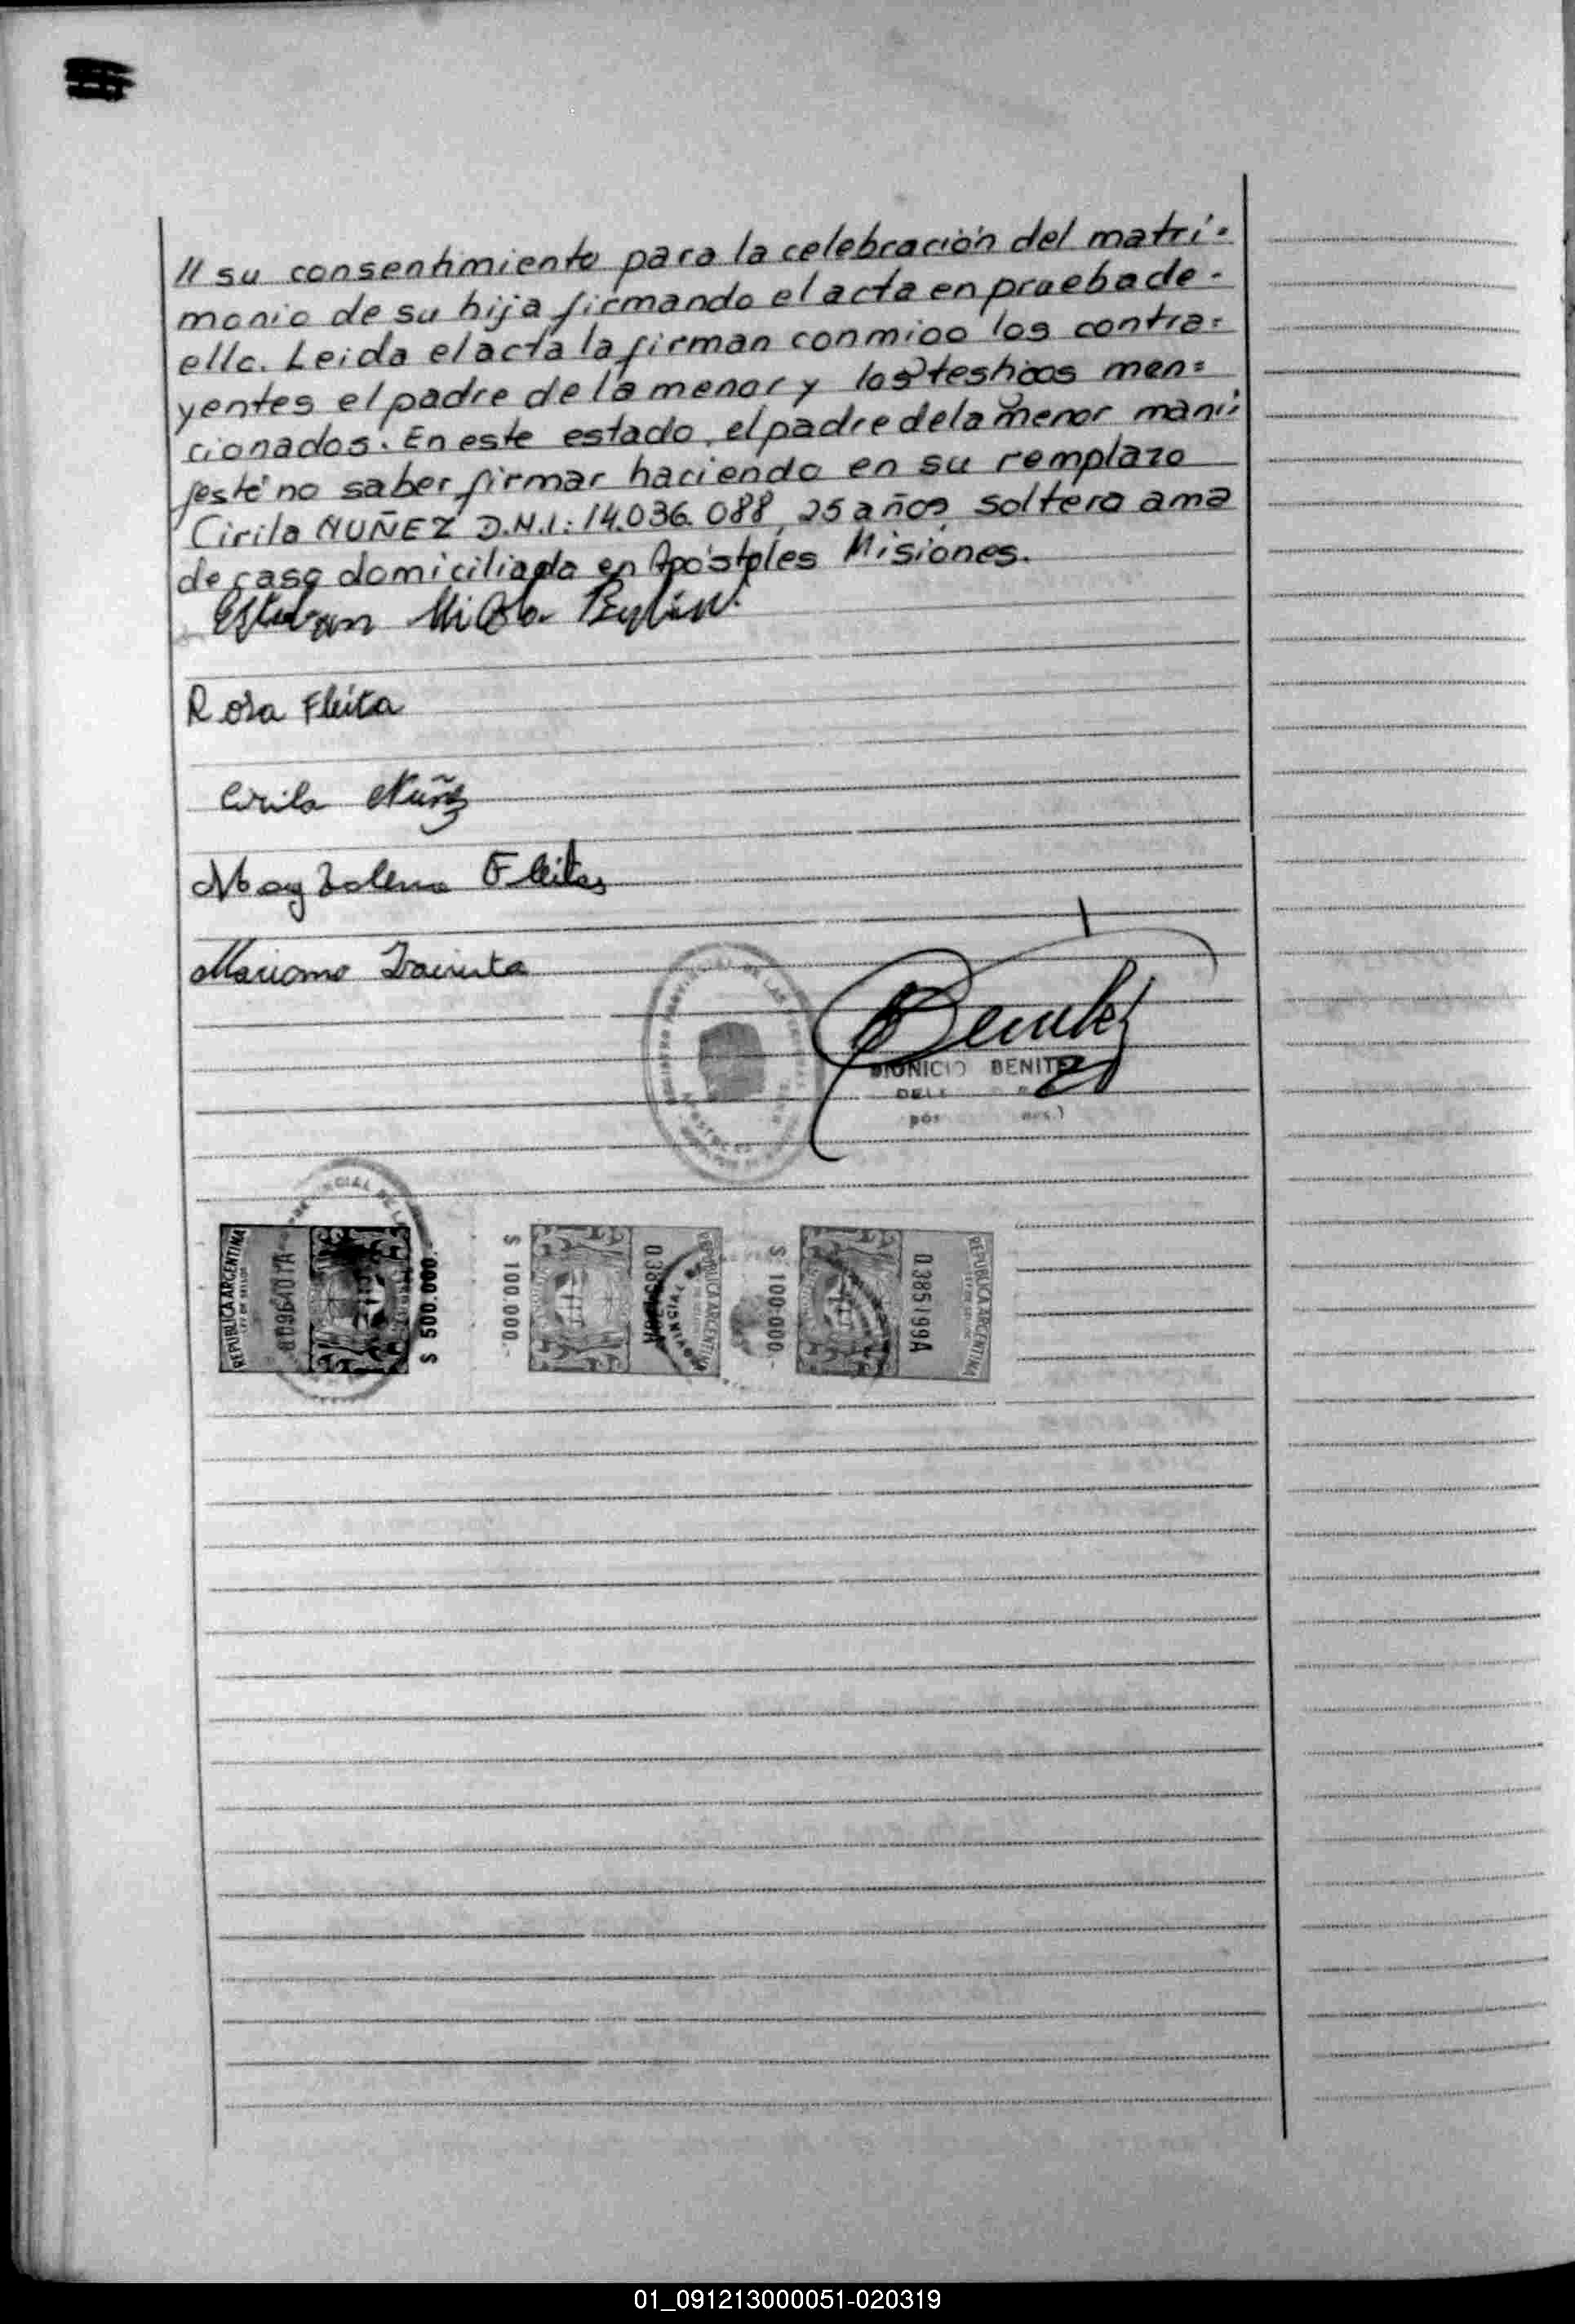 // su consentimiento para la celebración del matri-
monio de su hija firmando el acta en prueba de-
ello. Leida el acta la firman conmigo los contra=
yentes el padre de la menor y los testigos men=
cionados. En este estado, el padre de la menor mani-
festó no saber firmar haciendo en su remplazo
Cirila NUÑEZ D.N.I.: 14.036.088, 25 años, soltera ama
de casa domiciliada en Apóstoles Misiones.
Esteban
Rosa Fleita
Cirila Nuñez
Magdalena Fleitas
Mariano
Benitez
DIONICIO BENITEZ
REPUBLICA ARGENTINA
$ 500.000.-
$ 100.000.-
REPUBLICA ARGENTINA
$ 100.000.-
0385199A
REPUBLICA ARGENTINA
01_091213000051-020319